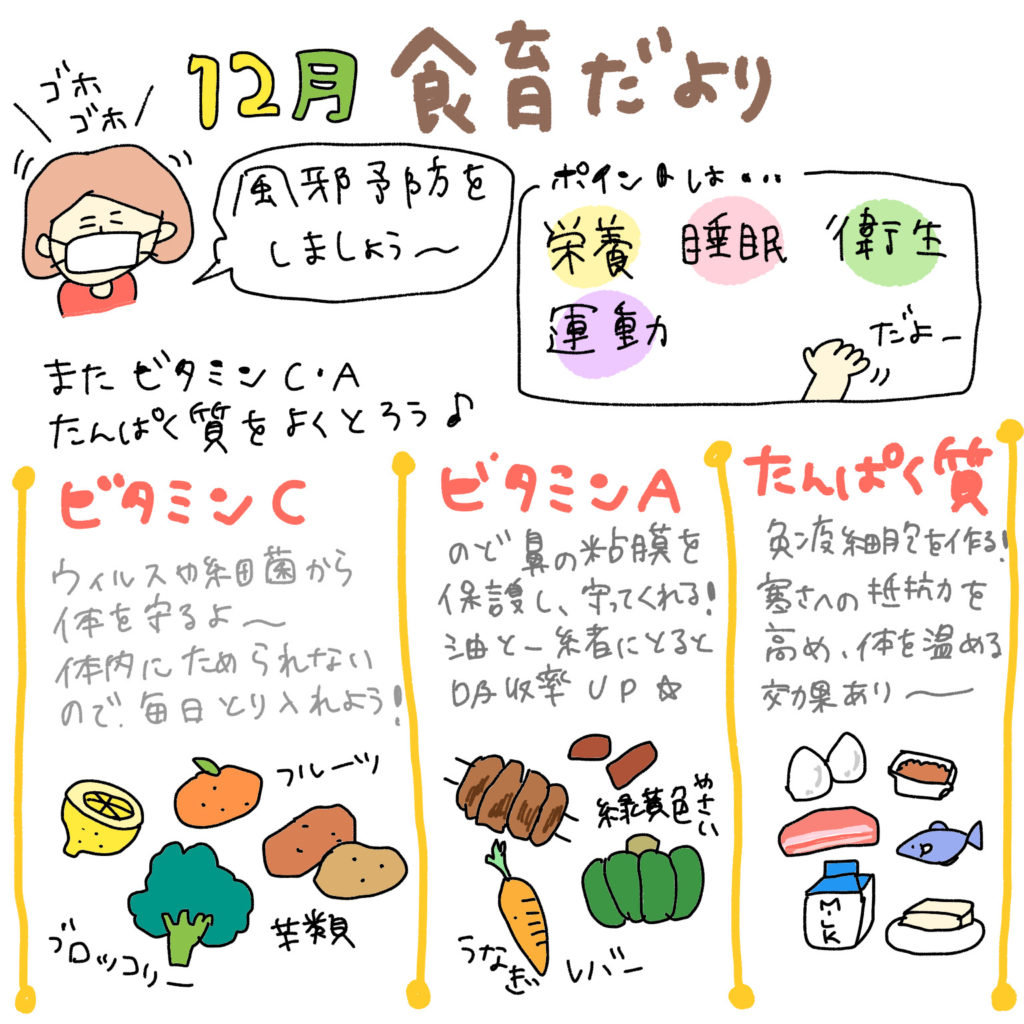 12月 食育だより
ゴホ
ゴホ
風邪予防を
しましょう〜
ポイントは・・・
栄養 睡眠 衛生
運動
だよー
またビタミンC・A
たんぱく質をよくとろう♪
ビタミンC
ウィルスや細菌から
体を守るよ〜
体内にためられない
ので、毎日とり入れよう!
フルーツ
ブロッコリー
芋類
ビタミンA
のど鼻の粘膜を
保護し、守ってくれる!
油と一緒にとると
吸収率UP☆
緑黄色
やさい
うなぎ
レバー
たんぱく質
免疫細胞を作る!
寒さへの抵抗力を
高め、体を温める
効果あり〜
MILK